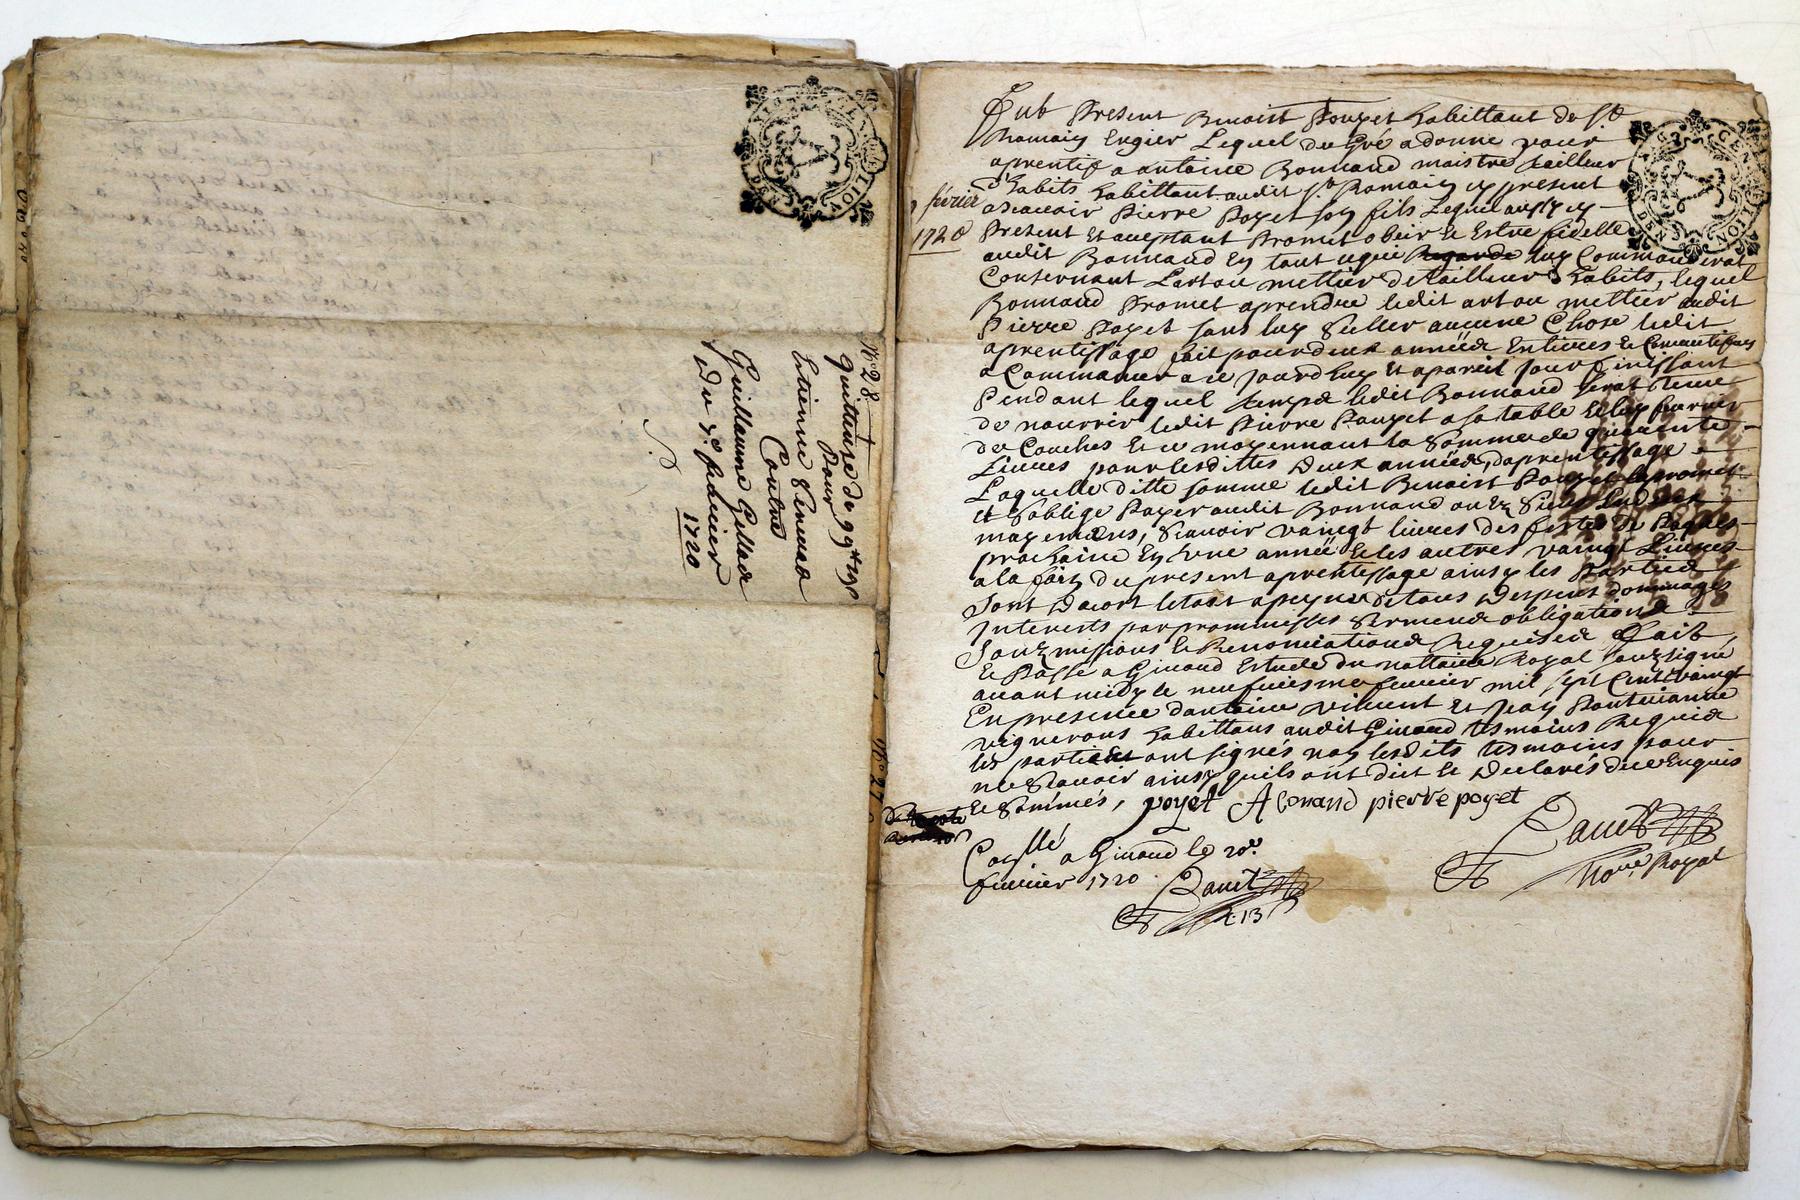 N° 28
quittance de 99
Pour
Estienne
Contre
Guillaume
Du 8e febvrier
1720
GEN. DE LION
fevrier
1720
Fut Present Benoist Poyet habittant de St
Romain Engier Lequel de Gré a donne pour
aprentif a antoine Bonnand maistre tailleur
d'habits habittant audit St Romain cy present
asscavoir Pierre Poyet son fils Lequel aussy cy
Present et aceptant Promet obeir et Estre fidelle
audit Bonnand En tout ce qui luy Commanderat
Consernant Lart ou mettier de tailleur d habits, lequel
Bonnand Promet aprendre ledit art ou mettier audit
Pierre Poyet sans luy Seller aucune Chose ledit
aprentissage fait pour deux années Entieres et
a Commancer a ce jourdhuy et a pareil jour finissant
Pendant lequel temps ledit Bonnand serat tenu
de nourrir ledit Pierre Poyet a sa table et luy fournir
de Couches et ce moyennant la Somme de quarente
Livres pour lesdittes Deux années daprentissage
Laquelle ditte somme ledit Benoist Poyet promet
et s'oblige Payer audit Bonnand
Scavoir vaingt livres des festes de Paques
prochaine En hune année et les autres vaingt Livres
a la fin du present aprentissage ainsy les Parties
sont Dacort le tout a peyne de tous Despens dommages
Interests par prommesses Sermens obligations
Soubzmissions et Renonciations Requises Fait
et Passé a Givord Estude du nottaire Royal soubzsigné
avant midy le neufviesme fevvrier mil sept Cent vaingt
En presence dantoine vincent et Jean
vignerons habittans audit Givord tesmoins Requis
les parties ont signés non lesdits tesmoins pour
ne Scavoir ainsy quils ont dict et Declarés de ce Enquis
et Sommés, poyet A bonand pierre poyet
N° 27
a Givord le 20e
fevvrier 1720
no.re Royal